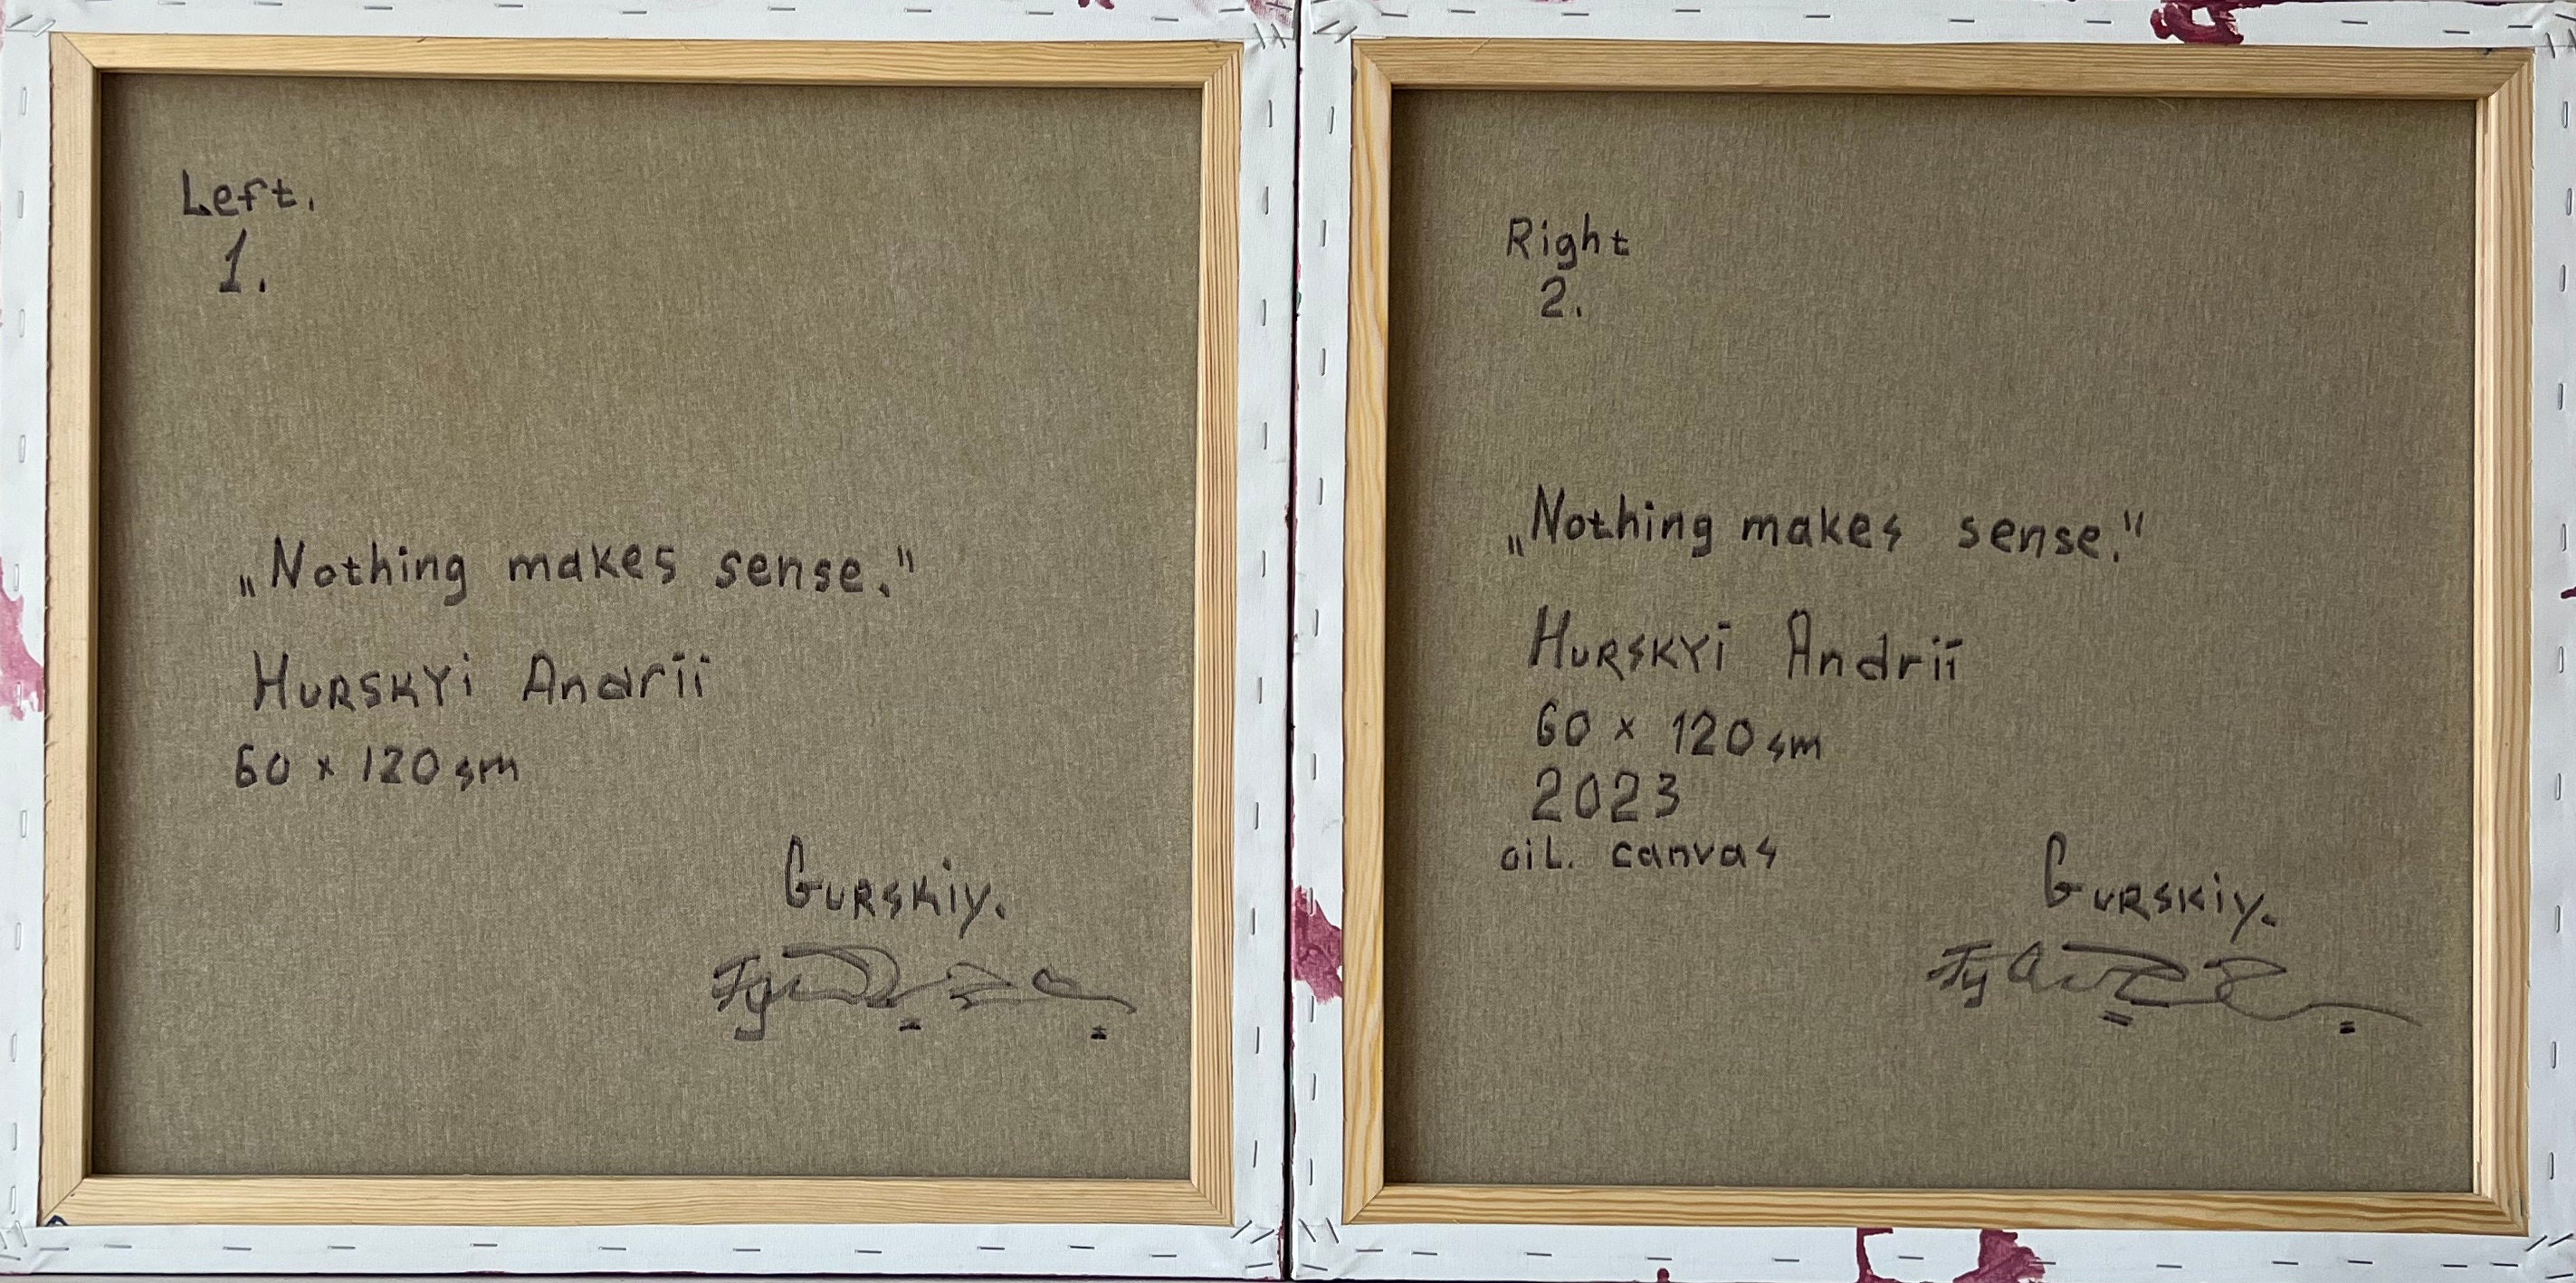 Left.
1.
„Nothing makes sense."
HURSKYi Andrii
60 x 120 sm
Gurskiy.
Right
2.
„Nothing makes sense."
HURSKYi Andrii
60 x 120 sm
2023
oiL. canvas
Gurskiy.